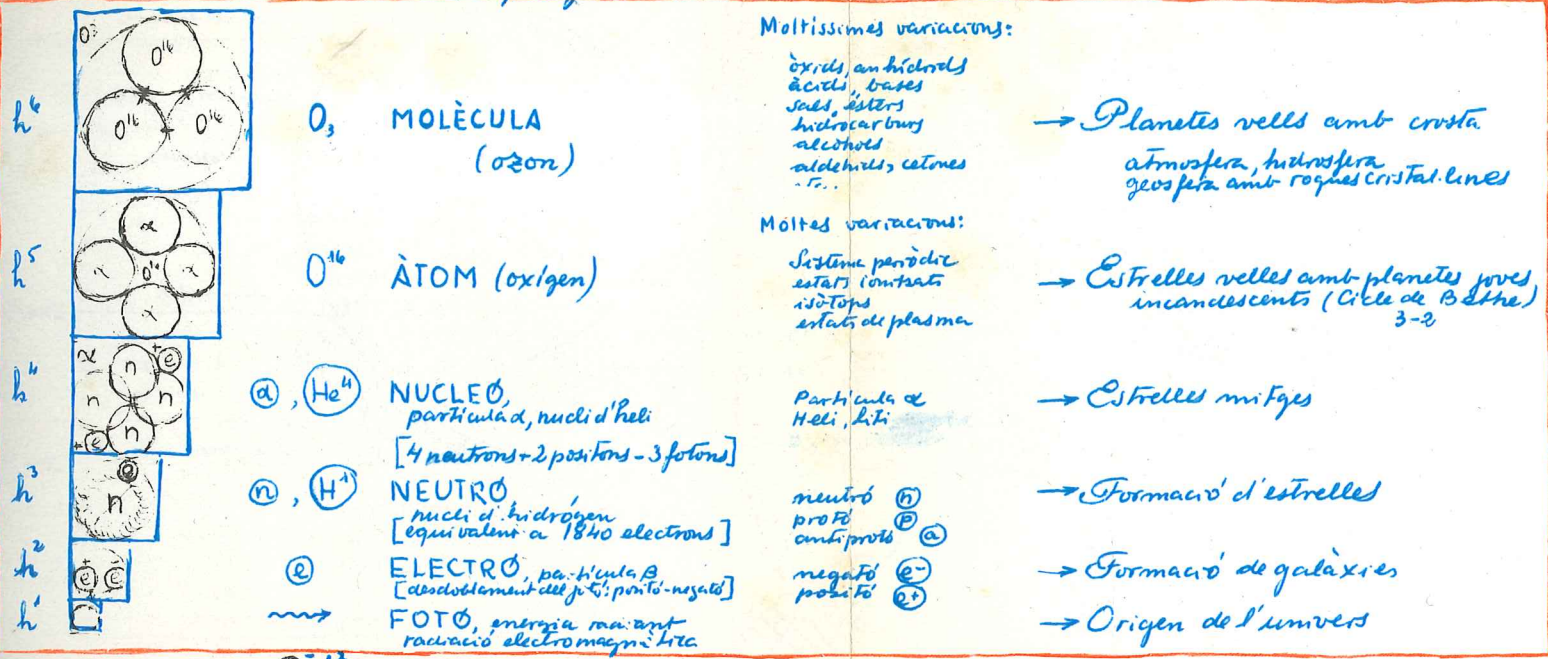 Moltíssimes variacions:
òxids, anhídrids
àcids, bases
sals, èsters
hidrocarburs
alcohols
aldehids, cetones
....
h⁶
O₃
O¹⁶
O¹⁶
O¹⁶
O₃ MOLÈCULA
(ozon)
→ Planetes vells amb crosta
atmosfera, hidrosfera
geosfera amb roques cristal·lines
Moltes variacions:
Sistema periòdic
estats ionitzats
isòtops
estats de plasma
h⁵
α
α O¹⁶ α
α
O¹⁶ ÀTOM (oxígen)
→ Estrelles velles amb planetes joves,
incandescents (Cicle de Bethe)
3-2
h⁴
α n + e
n n
+ e n
α, He⁴ NUCLEÓ,
partícula α, nucli d'heli
[4 neutrons + 2 positons - 3 fotons]
Partícula α
Heli, liti
→ Estrelles mitges
h³
e
n
n, H¹ NEUTRÓ,
nucli d'hidrógen
[equivalent a 1840 electrons]
neutró n
protó p
antiprotó a
→ Formació d'estrelles
h²
+ -
e e
e ELECTRÓ, partícula β
[desdoblament del fotó: positó-negató]
negató e-
positó e+
→ Formació de galàxies
h¹
FOTÓ, energia radiant
radiació electromagnètica
→ Origen de l'univers